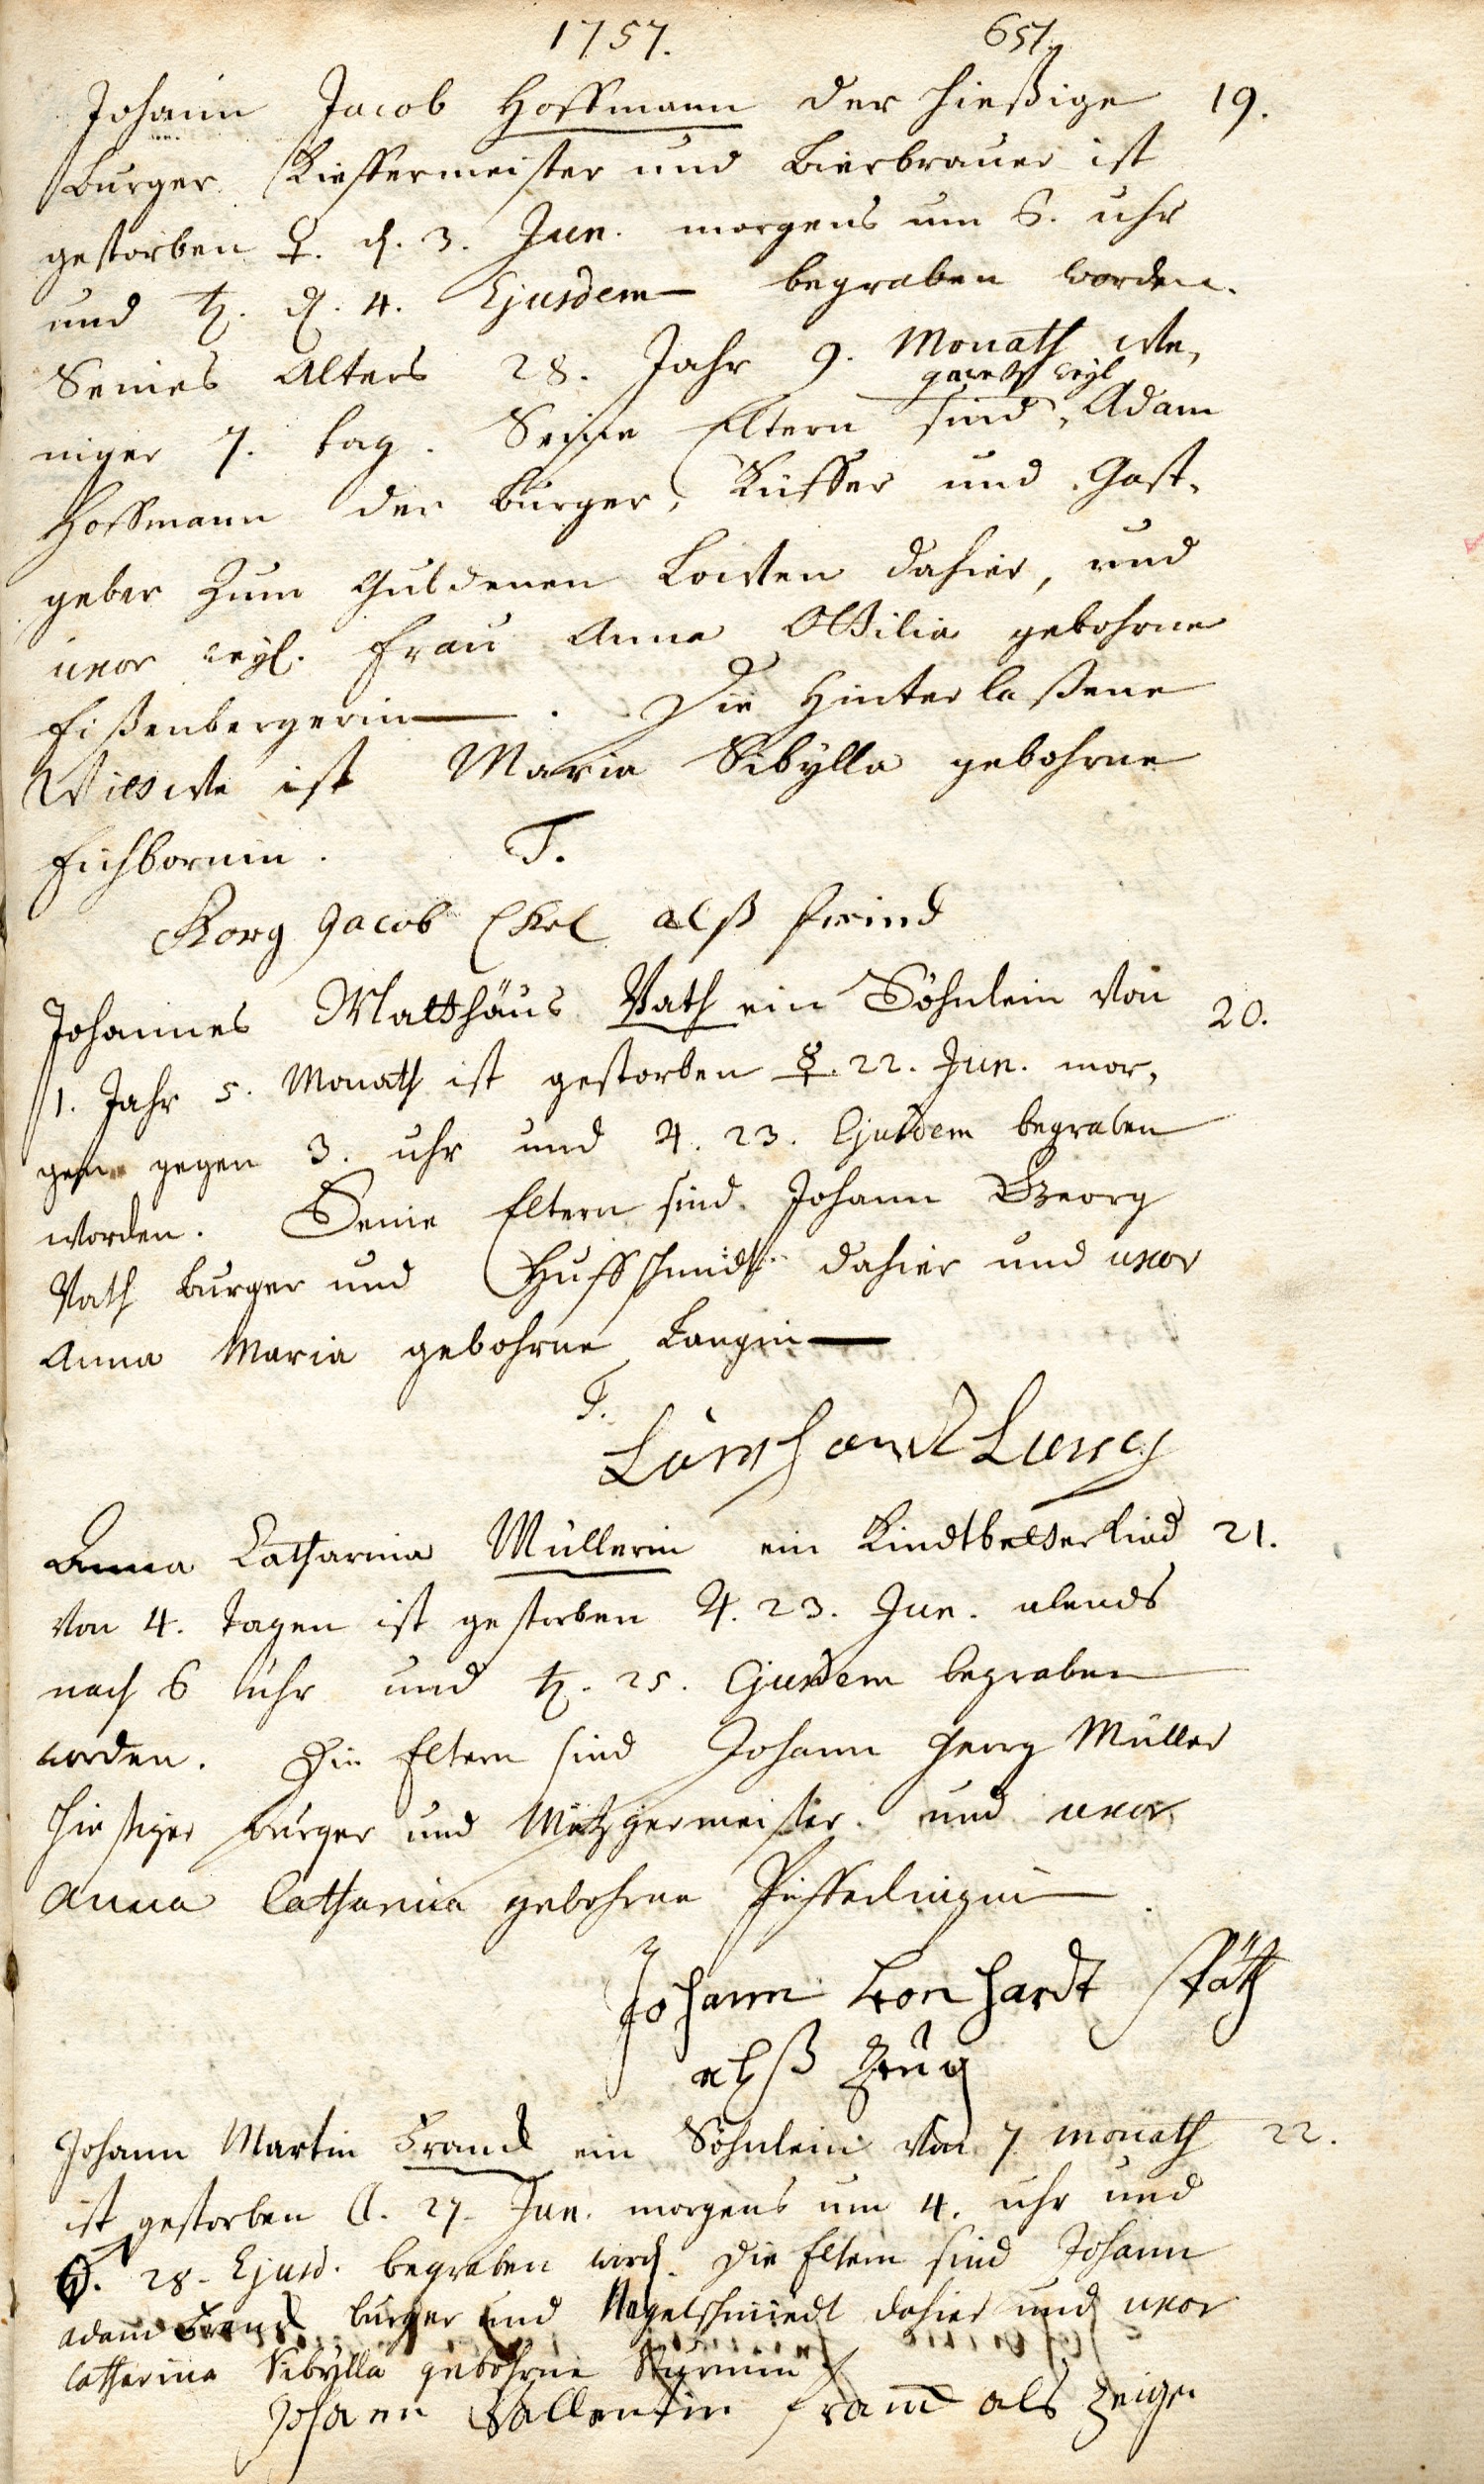 1757. 651.
Johann Jacob Hoffmann der hießige 19.
burger Kieffermeister und Bierbrauer ist
gestorben ♀. d. 3. Jun. morgens um 6. uhr
und ♄. d. 4. Ejusdem begraben worden.
Seines Alters 28. Jahr 9. Monath we,
niger 7. tag. Seine Eltern sind weyl Adam
Hoffmann der burger, Küffer und Gast,
geber zum Guldenen Lowen dahier, und
uxor weyl. Frau Anna Ottilia gebohrne
Eißenbergerin. Die Hinterlaßene
Wittwe ist Maria Sibylla gebohrne
Eichbornin. T.
Georg Jacob Ekel alß freind
Johannes Matthäus Vath ein Söhnlein von 20.
1. Jahr 5. Monath ist gestorben ☿. 22. Jun. mor,
gen gegen 3. uhr und ♃. 23. Ejusdem begraben
worden. Seine Eltern sind Johann Georg
Vath burger und Huffschmidt dahier und uxor
Anna Maria gebohrne Langin
T.
Anna Catharina Müllerin ein Kindtbetterkind 21.
von 4. tagen ist gestorben ♃. 23. Jun. abends
nach 6 uhr und ♄. 25. Ejusdem begraben
worden. Die Eltern sind Johann Georg Müller
hießiger burger und Metzgermeister und uxor
Anna Catharina gebohrne Pfifferlingin
Johann Leonhardt Späth
alß Zeug
Johann Martin Franck ein Söhnlein von 7 monath 22.
ist gestorben ☾. 27. Jun. morgens um 4. uhr und
♂. 28. Ejusd. begraben word. Die Eltern sind Johann
adam Franck burger und Nagelschmiedt dahier und uxor
Catharina Sibylla gebohrne Sturmin
Johann Vallentin Franck als zeigen